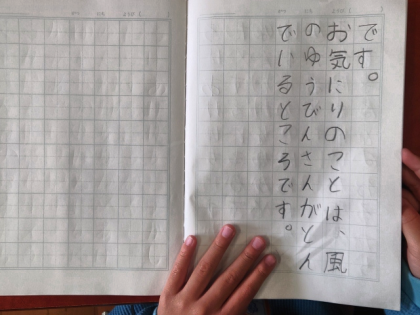 です。
お気にりのことは、風
のゆうびんさんがとん
でいるところです。